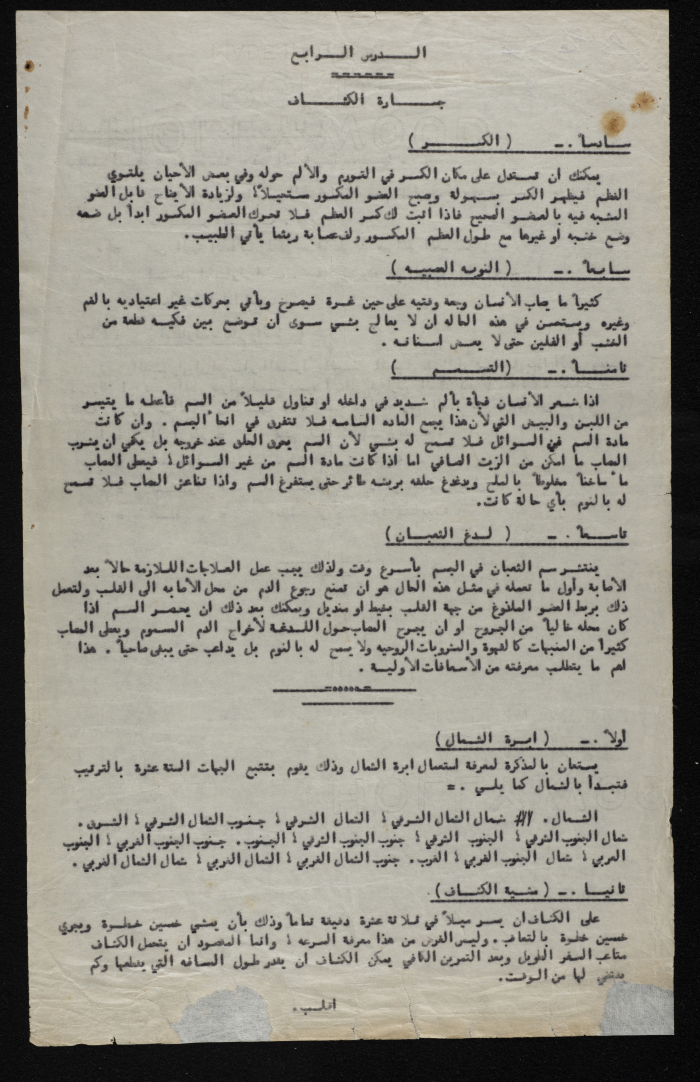 الـــدرس الـــرابع
جـــارة الكشـــاف
سادساً .- ( الكـــر )
يمكنك ان تستدل على مكان الكسر في التورم والألم حوله وفي بعض الأحيان يلتوي
العظم فيظهر الكسر بسهولة وصبح العضو المكسور ستحيلاً ؛ ولزيادة الأيضاح قابل العضو
المشبه فيه بالعضو الصحيح فاذا اثبت لك كسر العظم فلا تحرك العضو المكسور ابداً بل ضعه
وضع خشبه او غيرها مع طول العظم المكسور ولف عصابة ريثما يأتي الطبيب.
سابعاً .- ( النوبه العصبيه )
كثيراً ما يصاب الأنسان وجعة وقتيه على حين غرة فيصرخ ويأتي بحركات غير اعتياديه بالفم
وغيره ويستحسن في هذه الحاله ان لا يعالج بشي سوى ان توضع بين فكيه قطعة من
الخشب أو الفلين حتى لا يعض اسنانه .
ثامنـــاً .- (التسمـــم )
اذا شعر الأنسان فجأة بألم شديد في داخله او تناول قليلاً من السم فأعطه ما يتيسر
من اللبن والبيض الني لأن هذا يجمع الماده السامه فلا تتفرق في انحاء الجسم . وان كانت
مادة السم في السوائل فلا تسمح له بشي لأن السم يحرق الحلق عند خروجه بل يكفي ان يشرب
المصاب ما امكن من الزيت الصافي اما اذا كانت مادة السم من غير السوائل ؛ فيعطى المصاب
ماءً ساخناً مخلوطاً بالملح ويدغدغ حلقه بريشه طائر حتى يستفرغ السم واذا تناعس المصاب فلا تسمح
له بالنوم بأي حالة كانت.
تاسعاً .- ( لدغ الثعبان )
ينتشر سم الثعبان في الجسم بأسرع وقت ولذلك يجب عمل العلاجات اللازمة حالاً بعد
الأصابة وأول ما تعمله في مثل هذه الحال هو ان تمنع رجوع الدم من محل الأصابه الى القلب ولتعمل
ذلك بربط العضو الملدوغ من جهة القلب بخيط او منديل ويمكنك بعد ذلك ان يعصر السم اذا
كان محله خالياً من الجروح او ان يجرح المصاب حول اللدغة لأخراج الدم المسموم ويعطى المصاب
كثيراً من المنبهات كالقهوة والمشروبات الروحيه ولا يسمح له بالنوم بل يداعب حتى يبقى صاحياً . هذا
اهم ما يتطلب معرفته من الأسعافات الأولية .
أولاً .- ( ابرة الشمال )
يستعان بالمذكرة لمعرفة استعمال ابرة الشمال وذلك يقوم بتتبع الجهات الستة عشرة بالترتيب
فتبدأ بالشمال كما يلي . =
الشمال . شمال الشمال الشرقي ؛ الشمال الشرقي ؛ جنوب الشمال الشرقي ؛ الشرق .
شمال الجنوب الشرقي ؛ الجنوب الشرقي ؛ جنوب الجنوب الشرقي ؛ الجنوب . جنوب الجنوب الغربي ؛ الجنوب
الغربي ؛ شمال الجنوب الغربي ؛ الغرب . جنوب الشمال الغربي ؛ الشمال الغربي ؛ شمال الشمال الغربي .
ثانيـا .- ( مشية الكشاف )
على الكشاف ان يسر ميلاً في ثلاثة عشرة دقيقة تماماً وذلك بأن يمشي خمسين خطوة ويجري
خمسين خطوة بالتعاقب . وليس الغرض من هذا معرفة السرعه ؛ وانما المقصود ان يتحمل الكشاف
متاعب السفر الطويل وبعد التمرين الكافي يمكن الكشاف ان يقدر طول المسافه التي يقطعها وكم
يقتضي لها من الوقت.
اقلب .